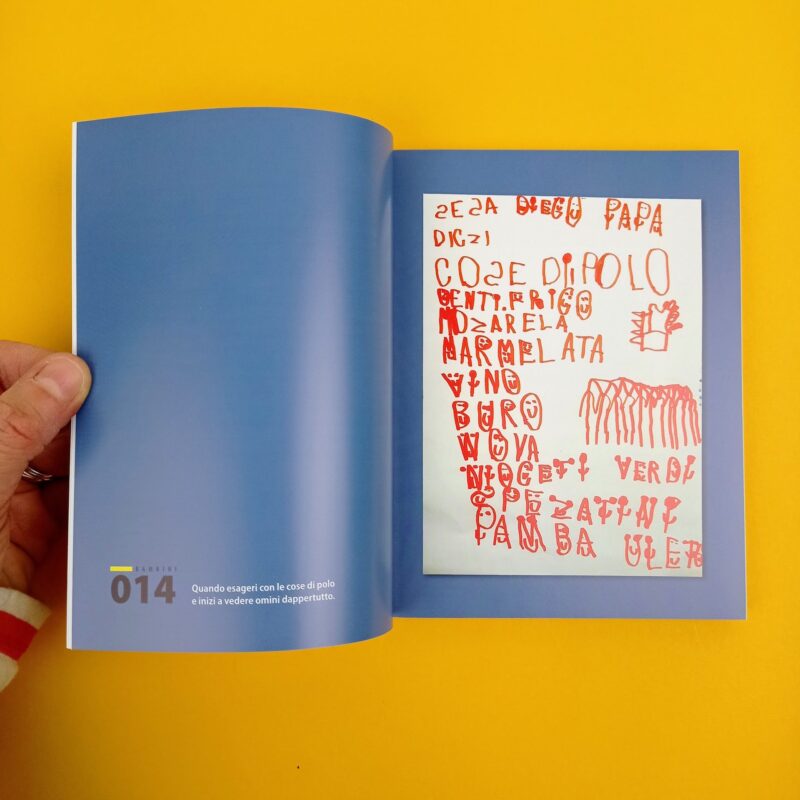 BAMBINI
014
Quando esageri con le cose di polo
e inizi a vedere omini dappertutto.
SESA DIEGO PAPA
COSE DI POLO
DENTI.FRIGO
MOZARELA
MARMELATA
VINO
BURO
WOVA
NIOCETI VERDI
SPEZATINI
PAMBA ULER